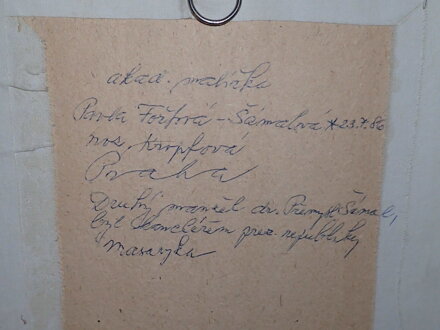 akad. malířka
Pavla Fořtová - Šámalová *23.X.86
roz. Kropfova
Praha
Druhý manžel dr. Přemysl Šámal,
byl kancléřem prez. republiky
Masaryka